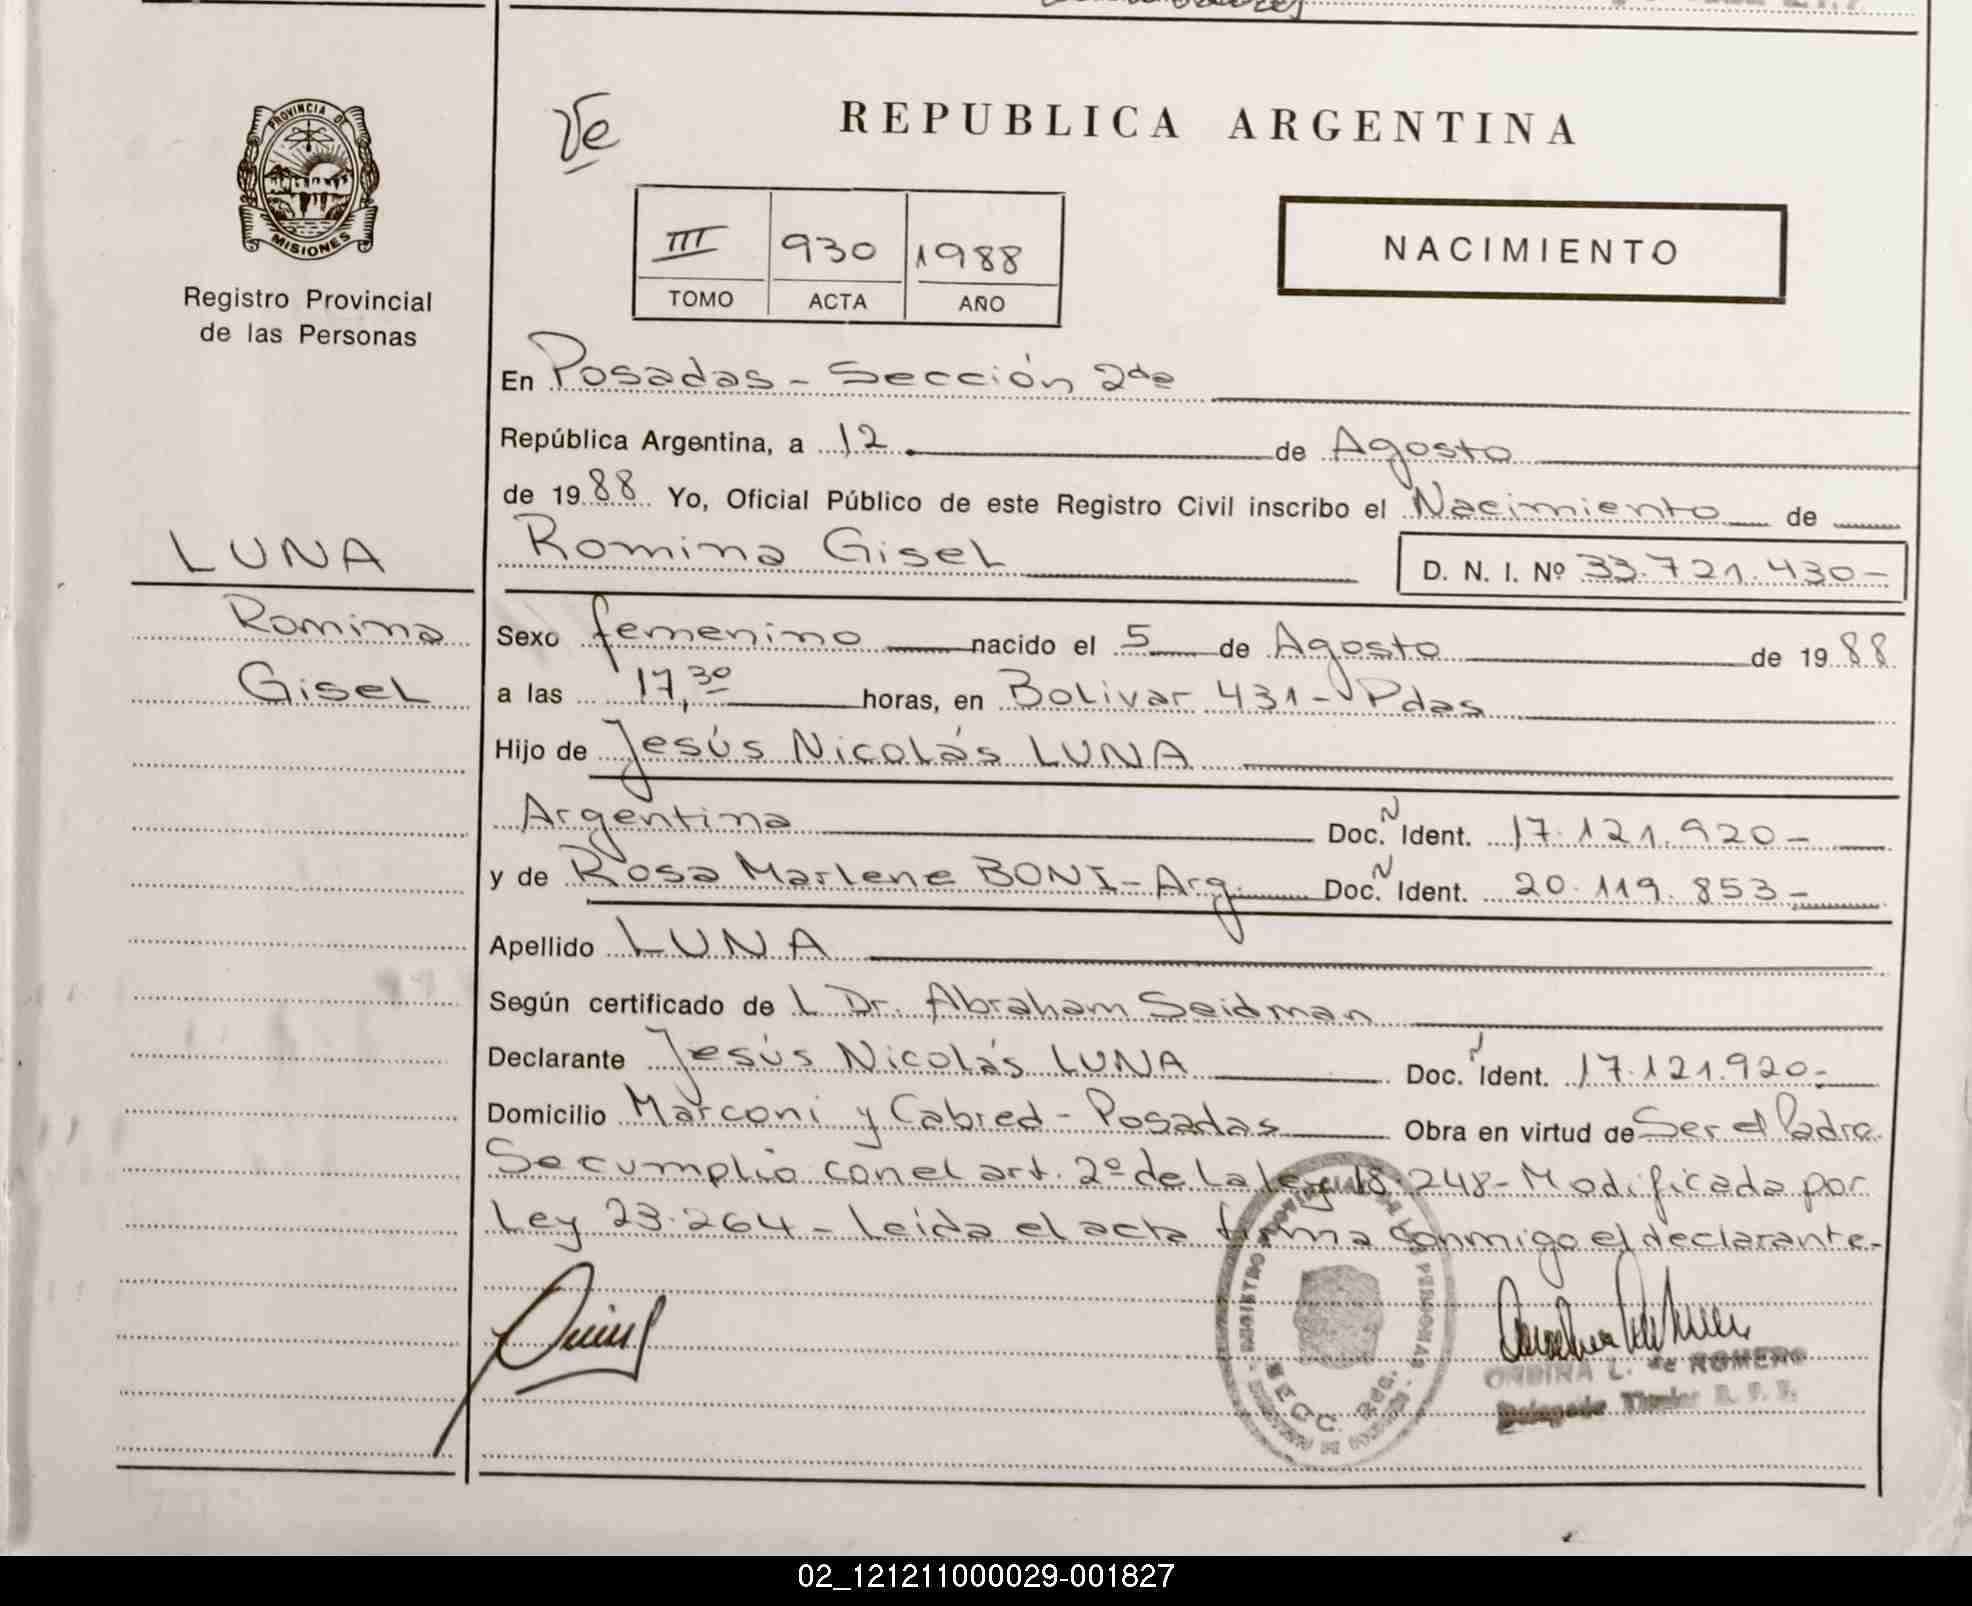 PROVINCIA DE
MISIONES
Registro Provincial
de las Personas
LUNA
Romina
Gisel
Ve
REPUBLICA ARGENTINA
III 930 1988
TOMO ACTA AÑO
NACIMIENTO
En Posadas - Sección 2da
República Argentina, a 12 de Agosto
de 1988 Yo, Oficial Público de este Registro Civil inscribo el Nacimiento de
Romina Gisel D. N. I. Nº 33.721.430-
Sexo femenino nacido el 5 de Agosto de 1988
a las 17,30 horas, en Bolivar 431 - Pdas
Hijo de Jesús Nicolás LUNA
Argentina Doc. N Ident. 17.121.920-
y de Rosa Marlene BONI - Arg. Doc. N Ident. 20.119.853-
Apellido LUNA
Según certificado de L Dr. Abraham Seidman
Declarante Jesús Nicolás LUNA Doc. N Ident. 17.121.920-
Domicilio Marconi y Cabred - Posadas Obra en virtud de Ser el Padre
Se cumplio con el art. 2º de la ley 18.248 - Modificada por
Ley 23.264 - Leída el acta firma conmigo el declarante-
SECC. 2da.
ONDINA L. de ROMERO
Delegada Titular R. P. P.
02_121211000029-001827